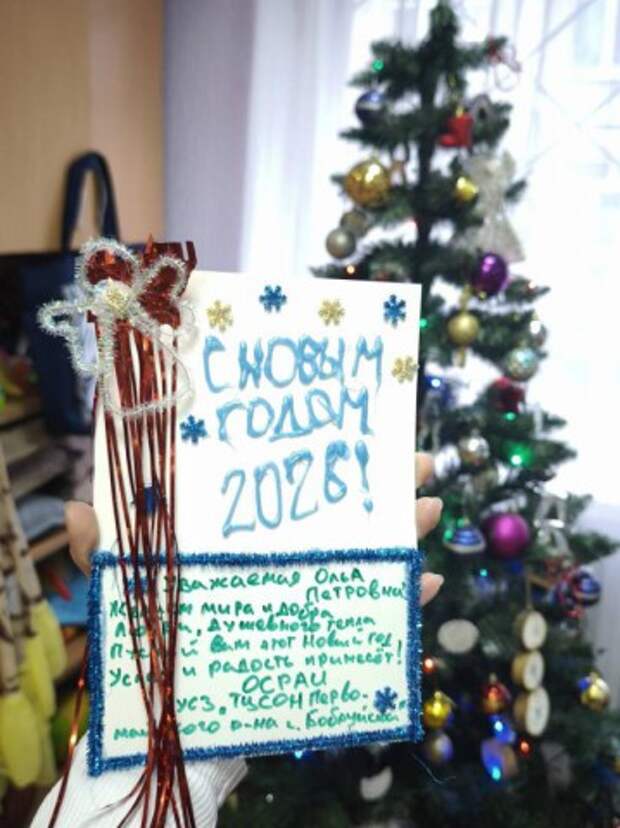 С НОВЫМ
ГОДОМ
2026!
Уважаемая Ольга
Петровна!
мира и добра
душевного тепла
Вам этот Новый год
и радость принесёт!
ОСРАИ
УСЗ "ТЦСОН Перво-
р-на г. Бобруйска